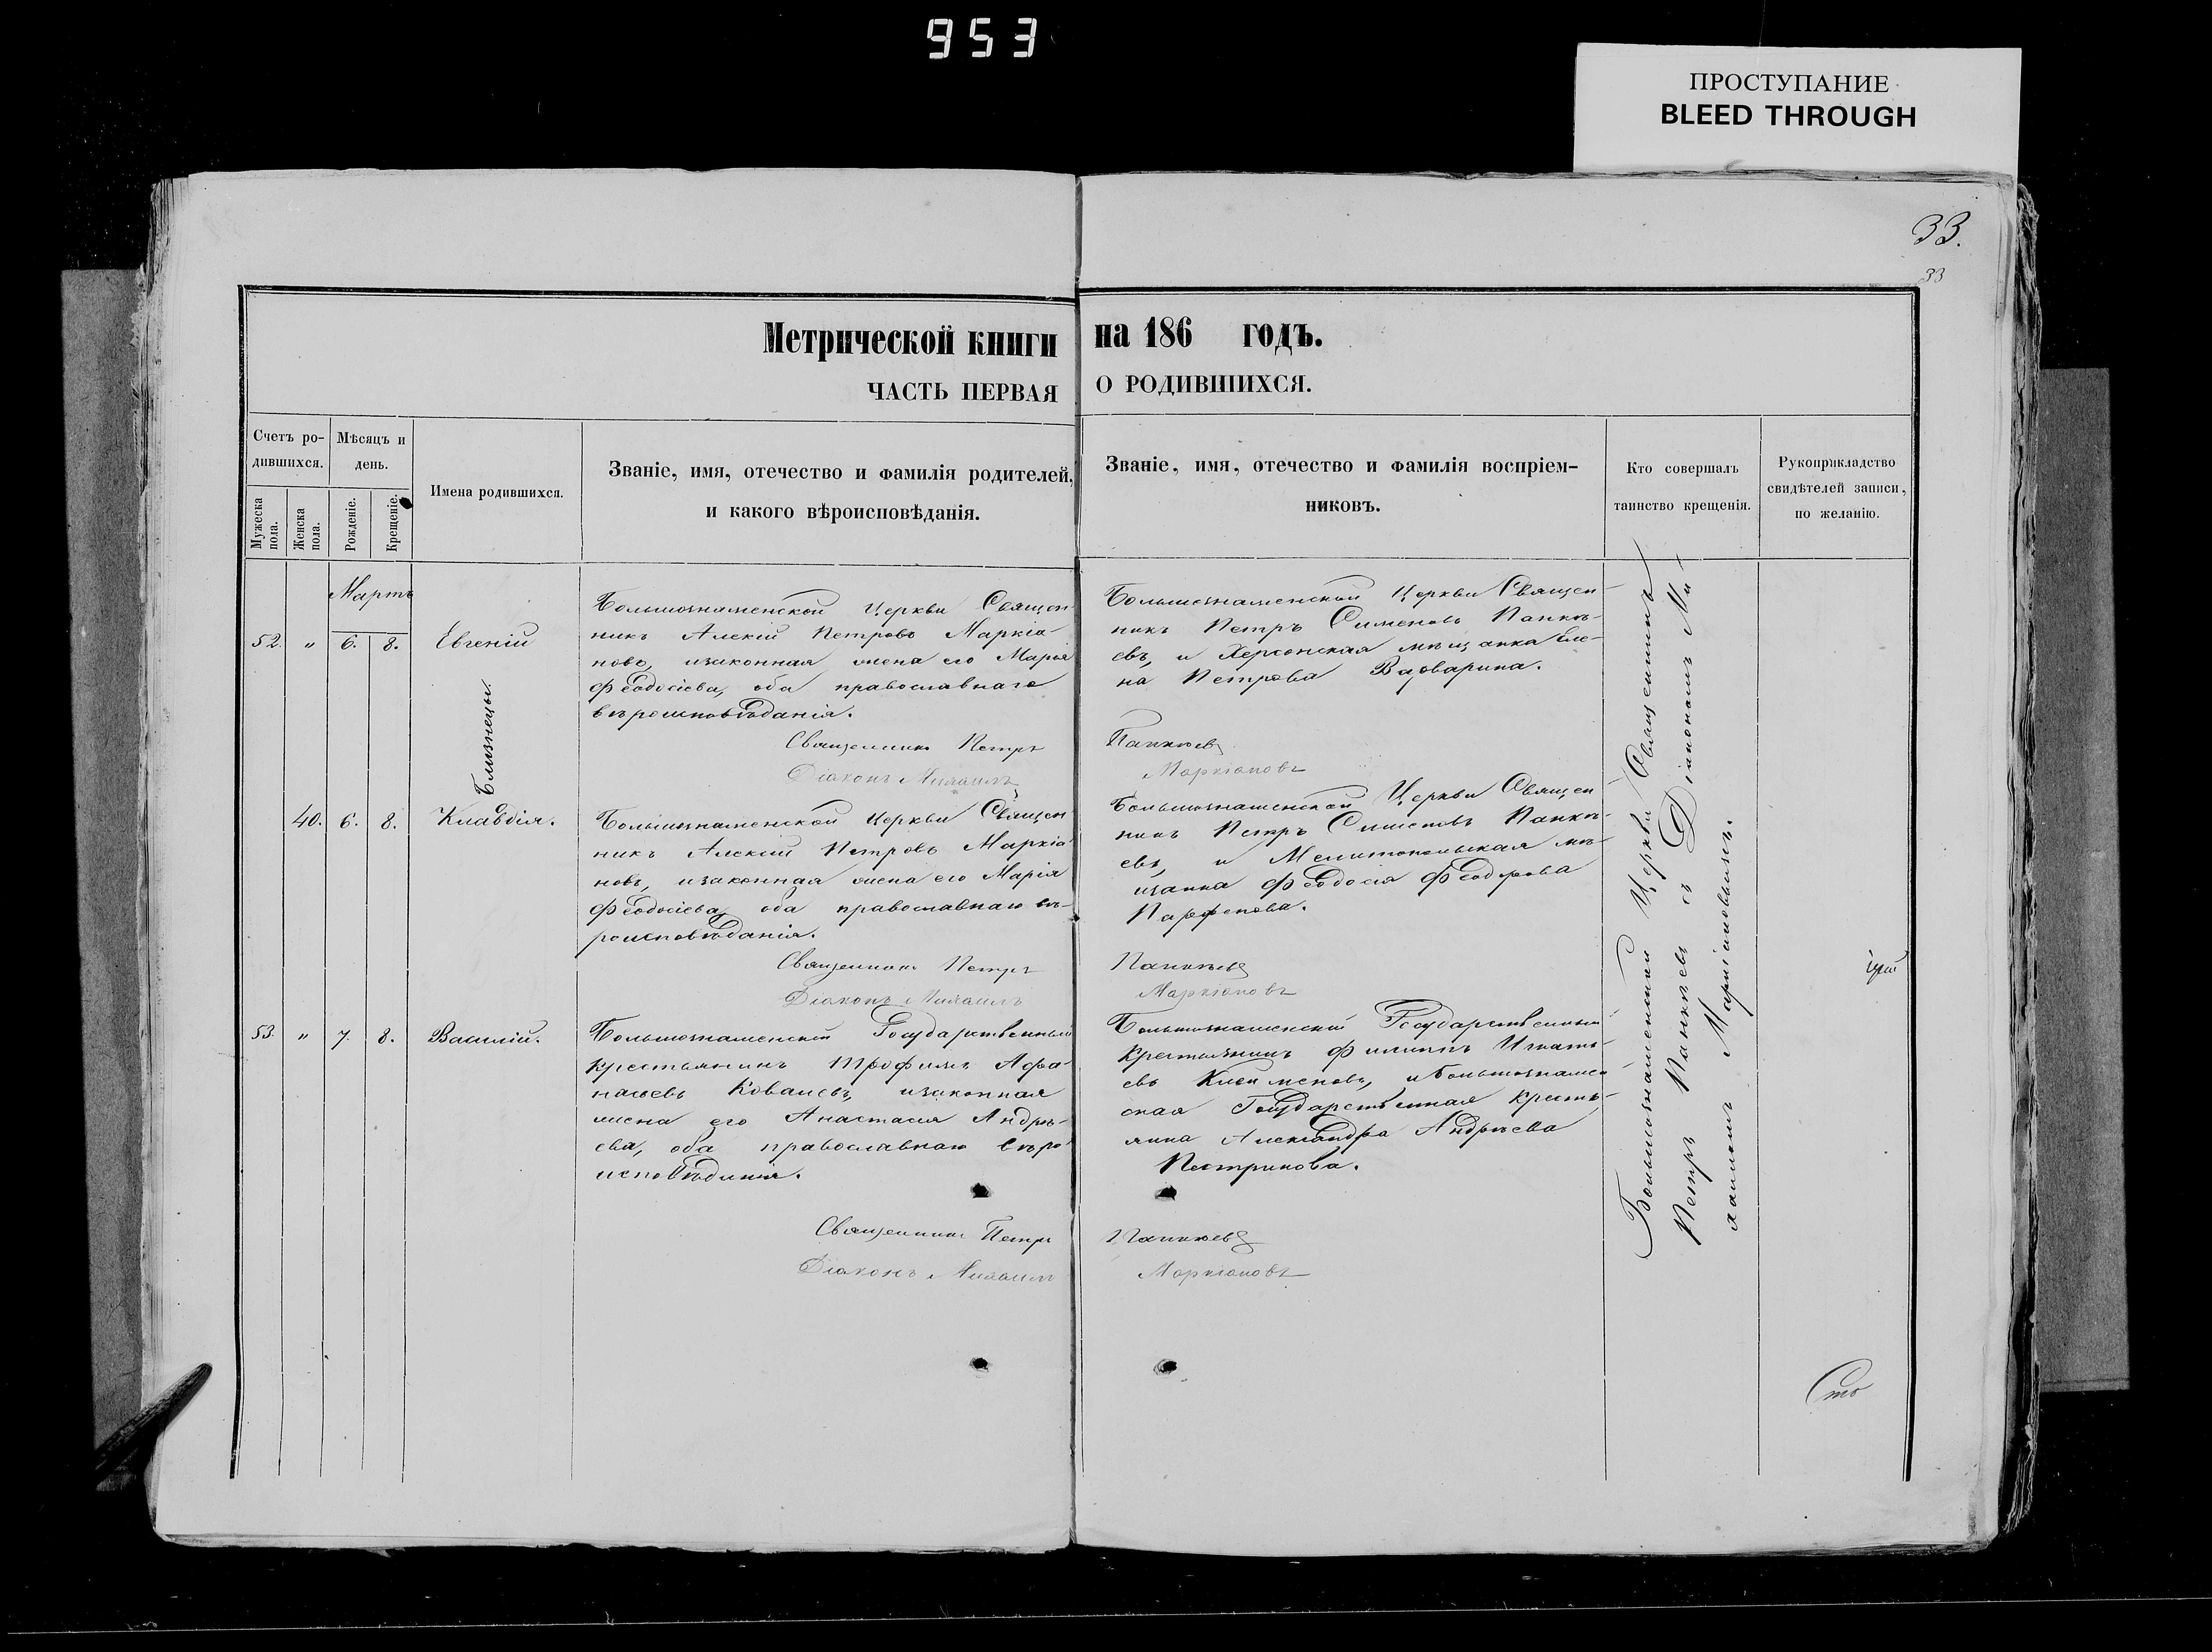 953
ПРОСТУПАНИЕ
BLEED THROUGH
33.
33
Метрической книги на 186 годъ.
ЧАСТЬ ПЕРВАЯ О РОДИВШИХСЯ.
Счетъ ро-
дившихся.
Мѣсяцъ и
день.
Мужеска
пола.
Женска
пола.
Рожденіе.
Крещеніе.
Имена родившихся.
Званіе, имя, отечество и фамилія родителей,
и какого вѣроисповѣданія.
Званіе, имя, отечество и фамилія воспріем-
никовъ.
Кто совершалъ
таинство крещенія.
Рукоприкладство
свидѣтелей записи,
по желанію.
Мартъ
52. " 6. 8. Евгеній
Большознаменской Церкви Священ-
никъ Алексій Петровъ Маркіа-
новъ, изаконная жена его Марія
Феодосіева, оба православнаго
вѣроисповѣданія.
Священникъ Петръ
Діаконъ Михаилъ
Большознаменской Церкви Священ-
никъ Петръ Сименовъ Панкѣ-
евъ, и Херсонская мѣщанка Еле-
на Петрова Варварина.
Панкѣевъ
Маркіановъ
Близнецы.
40. 6. 8. Клавдія.
Большознаменской Церкви Священ
никъ Алексій Петровъ Маркіа-
новъ, изаконная жена его Марія
Феодосіева, оба православнаго вѣ-
роисповѣданія.
Священникъ Петръ
Діаконъ Михаилъ
Большознаменской Церкви Священ
никъ Петръ Сименовъ Панкѣ-
евъ, и Мелитопольская мѣ-
щанка Феодосія Феодорова
Парфенова.
Панкѣевъ
Маркіановъ
53. " 7. 8. Василій.
Большознаменскій Государственный
крестьянинъ Трофимъ Афа-
насьевъ Ковалевъ, изаконная
жена его Анастасія Андрѣ-
ева, оба православнаго вѣро-
исповѣданія.
Священникъ Петръ
Діаконъ Михаилъ
Большознаменскій Государственный
крестьянинъ Филиппъ Игнать-
евъ Клименовъ, и Большознамен
ская Государственная кресть-
янка Александра Андрѣева
Пестрикова.
Панкѣевъ
Маркіановъ
Большознаменской Церкви Священникъ
Петръ Панкѣевъ съ Діакономъ Ми-
хаиломъ Маркіановымъ.
Сто